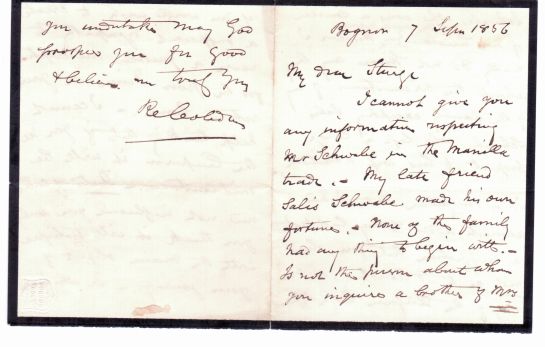 Bognor 7 Sep 1856
My dear Sturge
I cannot give you
any information respecting
Mr Schwabe in the Manilla
trade. - My late friend
Salis Schwabe made his own
fortune, - None of the family
had any thing to begin with. -
Is not the person about whom
you inquire a brother of Mrs
you undertake may God
prosper you for good
& believe me truly yrs